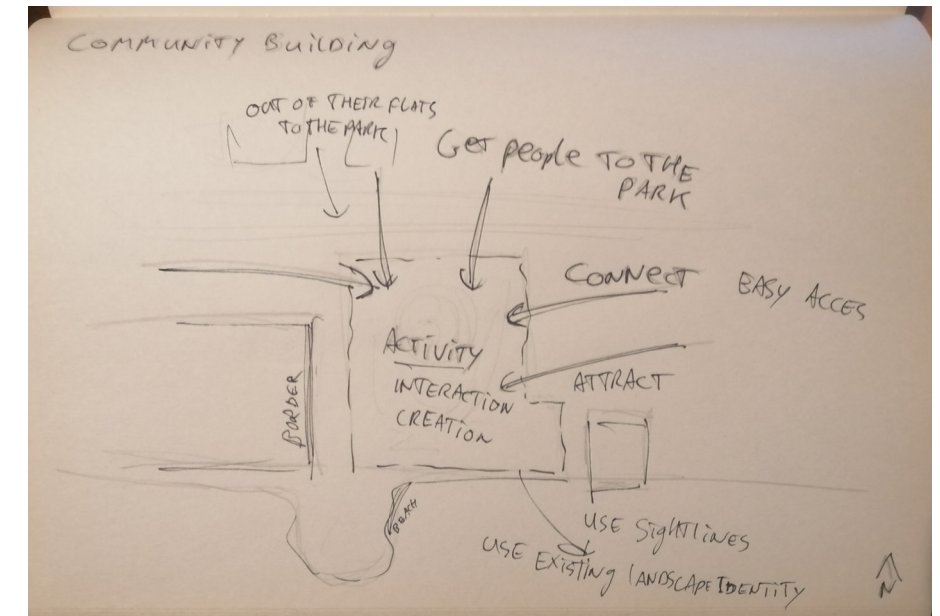 COMMUNITY BUILDING
OUT OF THEIR FLATS
TO THE PARK
Get people TO THE
PARK
CONNECT EASY ACCES
ACTIVITY
INTERACTION
CREATION
ATTRACT
BORDER
BEACH
USE SigHTLiNES
USE ExiSTiNg LANDSCAPE IDENTITY
N